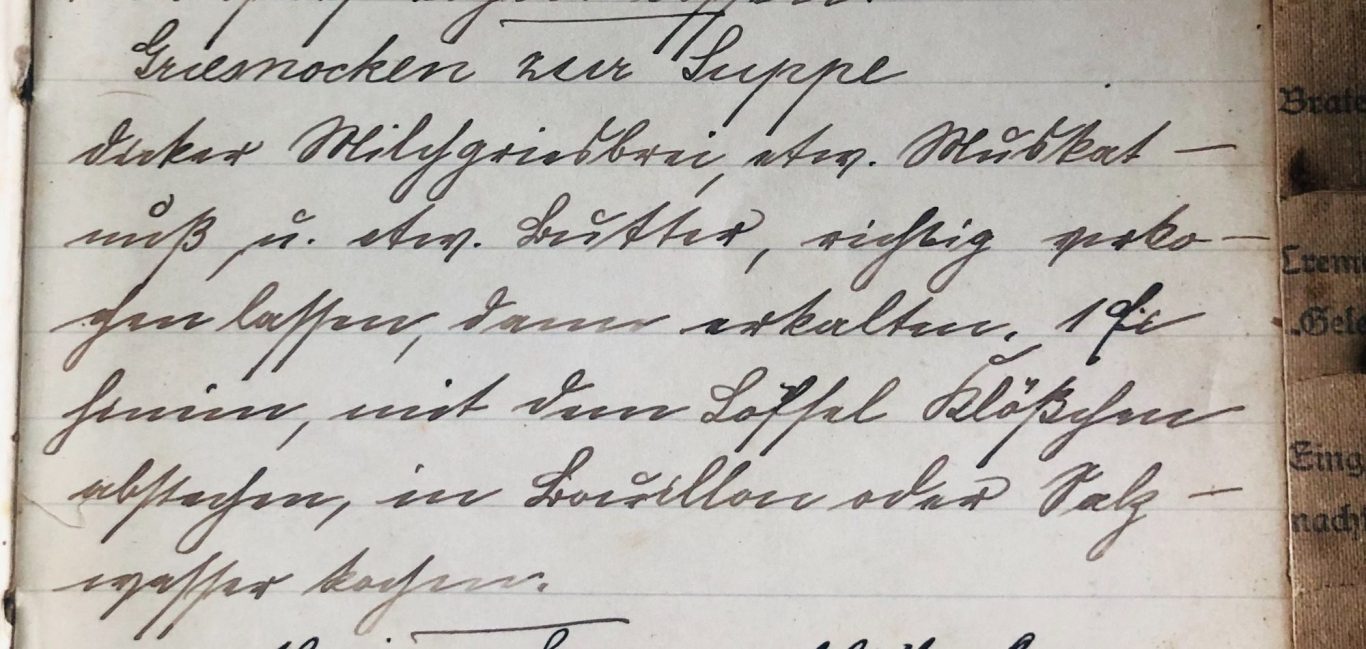 Griesnocken zur Suppe
dicker Milchgriesbrei, etw. Muskat –
nuß u. etw. Butter, richtig verko –
chen lassen, dann erkalten. 1 Ei
hinein, mit dem Löffel Klößchen
abstechen, in Bouillon oder Salz –
wasser kochen.
Brat
Creme
Gel
Eing
nach